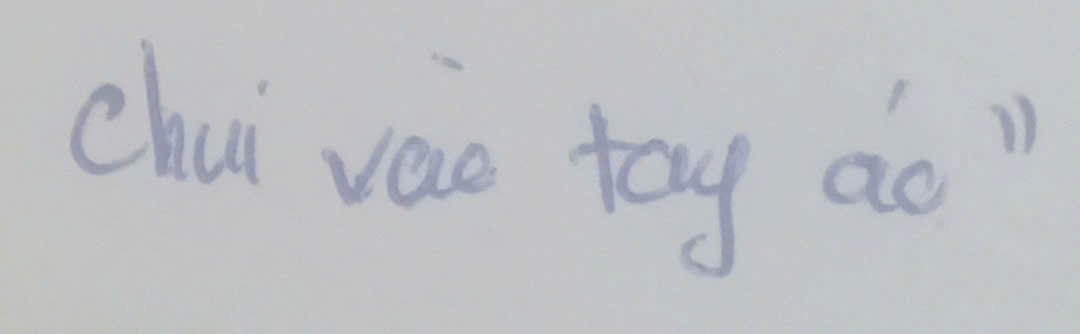 Chui vào tay áo"